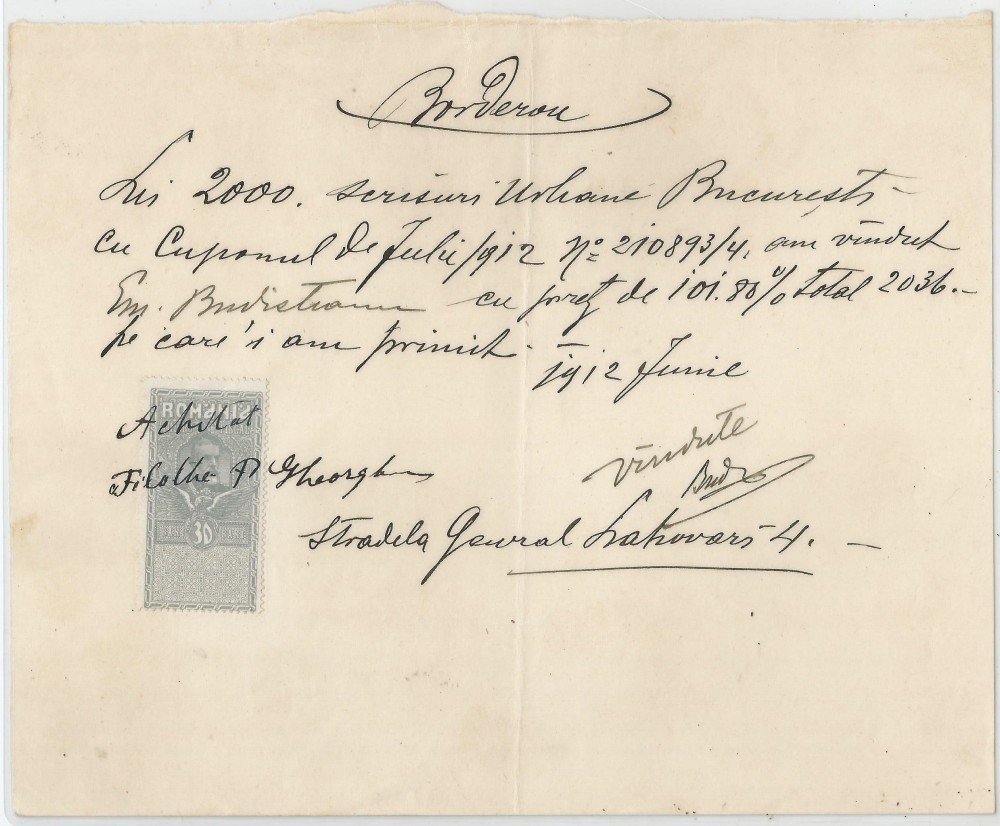 Borderou
Lei 2000. scrisuri Urbane Bucuresti -
cu Cuponul de Julie/912 No 210893/4, am vîndut
Em. Budisteanu cu preţ de 101.80% total 2036.-
pe care'i am primit.
1912 Junie
ROMANIA
Achitat
Filothe P Gheorghu
vîndute
Bud
30
Stradela General Lahovari 4. -